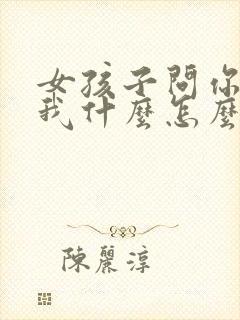 女孩子問你
我什麼怎麼
陳麗淳